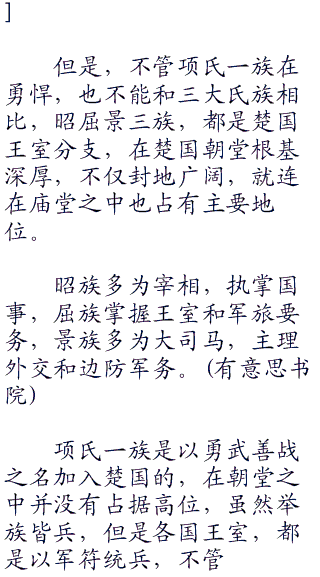 ]
但是，不管项氏一族在
勇悍，也不能和三大氏族相
比，昭屈景三族，都是楚国
王室分支，在楚国朝堂根基
深厚，不仅封地广阔，就连
在庙堂之中也占有主要地
位。
昭族多为宰相，执掌国
事，屈族掌握王室和军旅要
务，景族多为大司马，主理
外交和边防军务。(有意思书
院)
项氏一族是以勇武善战
之名加入楚国的，在朝堂之
中并没有占据高位，虽然举
族皆兵，但是各国王室，都
是以军符统兵，不管